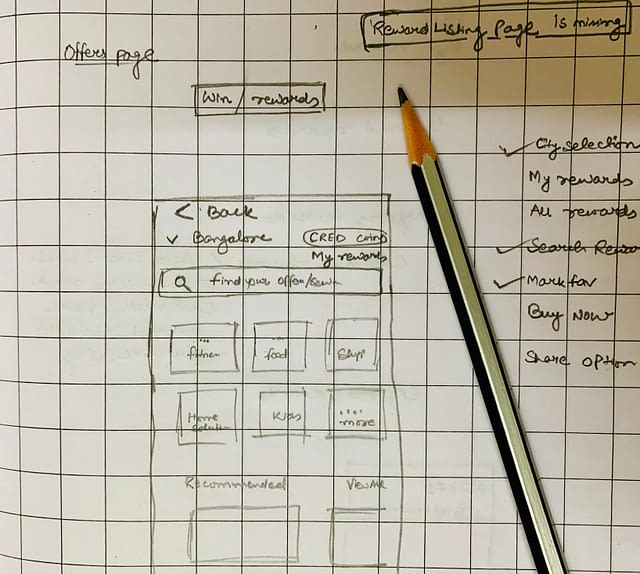 Reward Listing Page Is missing
Offers page
Win / rewards
City selection
My rewards
All rewards
Search
Mark fav
Buy Now
Share option
< Back
Bangalore
CRED coins
My rewards
Find your offer/
fitness
food
Home
Kids
.... more
Recommended
View All